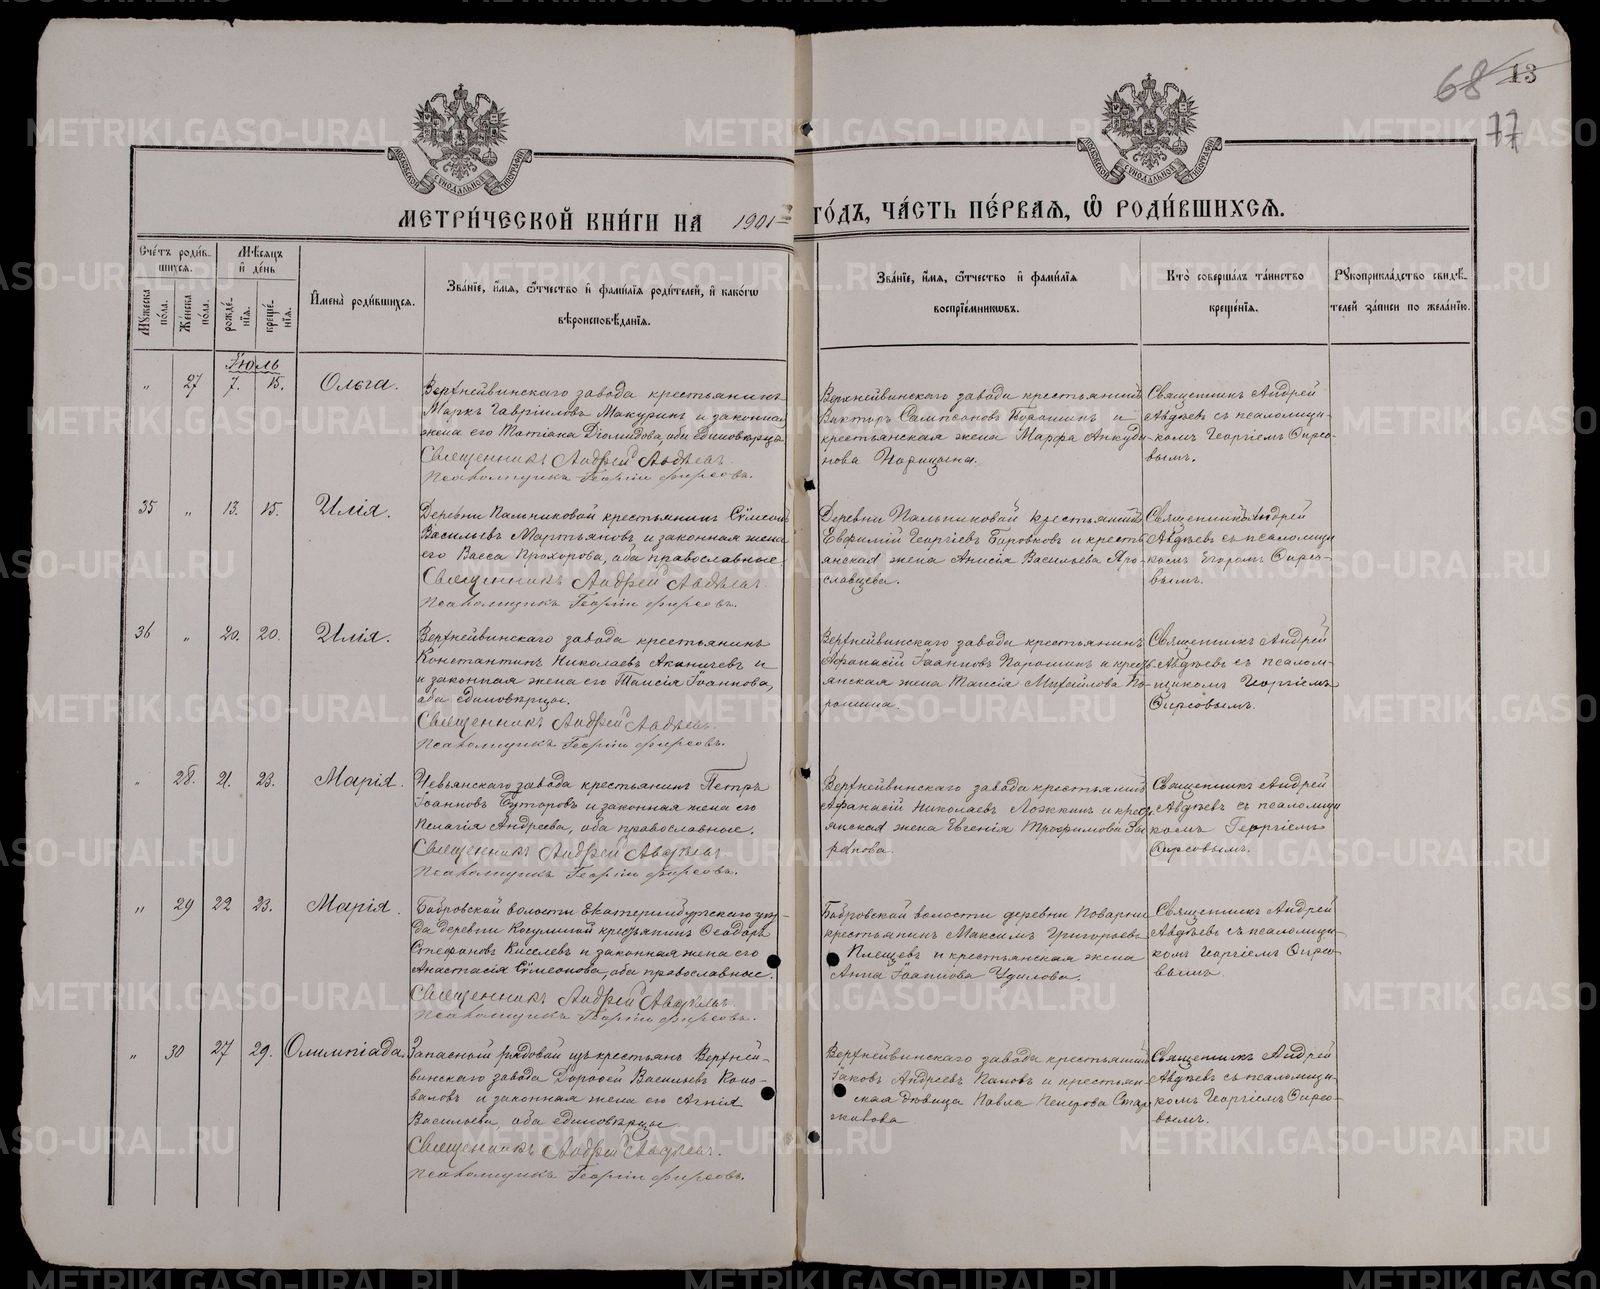 68 13
77
МОСКОВСКОЙ СѴНОДАЛЬНОЙ ТИПОГРАФІИ
МОСКОВСКОЙ СѴНОДАЛЬНОЙ ТИПОГРАФІИ
МЕТРИ́ЧЕСКОЙ КНИ́ГИ НА 1901 ГО́ДЪ, ЧА́СТЬ ПЕ́РВАЯ, Ѽ РОДИ́ВШИХСЯ.
Сче́тъ роди́в-
шихся.
Мѣ́сяцъ
и҆ де́нь
Му́жеска по́ла.
Же́нска по́ла.
рожде́-
нїя.
креще́-
нїя.
И҆мена̀ роди́вшихся.
Зва́нїе, и҆́мя, ѻ҆́тчество и҆ фами́лїя роди́телей, и҆ како́гѡ
вѣроисповѣ́данїя.
Зва́нїе, и҆́мя, ѻ҆́тчество и҆ фами́лїя
воспрїе́мникѡвъ.
Кто̀ соверша́лъ та́инство
креще́нїя.
Рꙋкоприкла́дство свидѣ́-
телей за́писи по жела́нїю.
Іюль
„ 27 7. 15. Ольга.
Верхнейвинскаго завода крестьянинъ
Маркъ Гавріиловъ Макуринъ и законная
жена его Татіана Діомидова, оба единовѣрцы
Священникъ Андрей Авдѣевъ.
Псаломщикъ Георгій Фирсовъ.
Верхнейвинскаго завода крестьянинъ
Викторъ Сампсоновъ и
крестьянская жена Марфа Анкуди-
нова Царицына.
Священникъ Андрей
Авдѣевъ съ псаломщи-
комъ Георгіемъ Фирсо-
вымъ.
35 „ 13. 15. Илія.
Деревни Пальниковой крестьянинъ Сѵмеонъ
Васильевъ Мартьяновъ и законная жена
его Васса Прохорова, оба православные
Священникъ Андрей Авдѣевъ.
Псаломщикъ Георгій Фирсовъ.
Деревни Пальниковой крестьянинъ
Евфимій Георгіевъ Боровковъ и кресть-
янская жена Анисія Васильева Яро-
славцева.
Священникъ Андрей
Авдѣевъ съ псаломщи-
комъ Егоромъ Фирсо-
вымъ.
36 „ 20. 20. Илія.
Верхнейвинскаго завода крестьянинъ
Константинъ Николаевъ Аканичевъ и
и законная жена его Таисія Іоаннова,
оба единовѣрцы.
Священникъ Андрей Авдѣевъ.
Псаломщикъ Георгій Фирсовъ.
Верхнейвинскаго завода крестьянинъ
Афанасій Іоанновъ Порошинъ и кресть-
янская жена Таисія Михайлова По-
рошина.
Священникъ Андрей
Авдѣевъ съ псалом-
щикомъ Георгіемъ
Фирсовымъ.
„ 28. 21. 23. Марія.
Невьянскаго завода крестьянинъ Петръ
Іоанновъ Буторовъ и законная жена его
Пелагія Андреева, оба православные.
Священникъ Андрей Авдѣевъ
Псаломщикъ Георгій Фирсовъ.
Верхнейвинскаго завода крестьянинъ
Афанасій Николаевъ Ложкинъ и крест-
янская жена Евгенія Трофимова

Священникъ Андрей
Авдѣевъ съ псаломщи
комъ Георгіемъ
Фирсовымъ.
„ 29 22 23. Марія.
Бобровской волости Екатеринбургскаго уѣз-
да деревни Косулиной крестьянинъ Ѳеодоръ
Стефановъ Киселевъ и законная жена его
Анастасія Сѵмеонова, оба православные.
Священникъ Андрей Авдѣевъ.
Псаломщикъ Георгій Фирсовъ.
Бобровской волости деревни Поварни
крестьянинъ Максимъ Григорьевъ
Плещевъ и крестьянская жена
Анна Іоаннова Удилова.
Священникъ Андрей
Авдѣевъ съ псаломщи-
комъ Георгіемъ Фирсо-
вымъ
„ 30 27 29. Олимпіада.
Запасной рядовой изъ крестьянъ Верхней-
винскаго завода Дороѳей Васильевъ Коно-
валовъ и законная жена его Агнія
Васильева, оба единовѣрцы
Священникъ Андрей Авдѣевъ.
Псаломщикъ Георгій Фирсовъ.
Верхнейвинскаго завода крестьянинъ
Іаковъ Андреевъ Пановъ и крестьян-
ская дѣвица Павла

Священникъ Андрей
Авдѣевъ съ псаломщи-
комъ Георгіемъ Фирсо-
вымъ.
METRIKI.GASO-URAL.RU